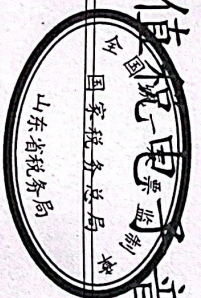 值税电子普
全国统一发票监制章
国家税务总局
山东省税务局